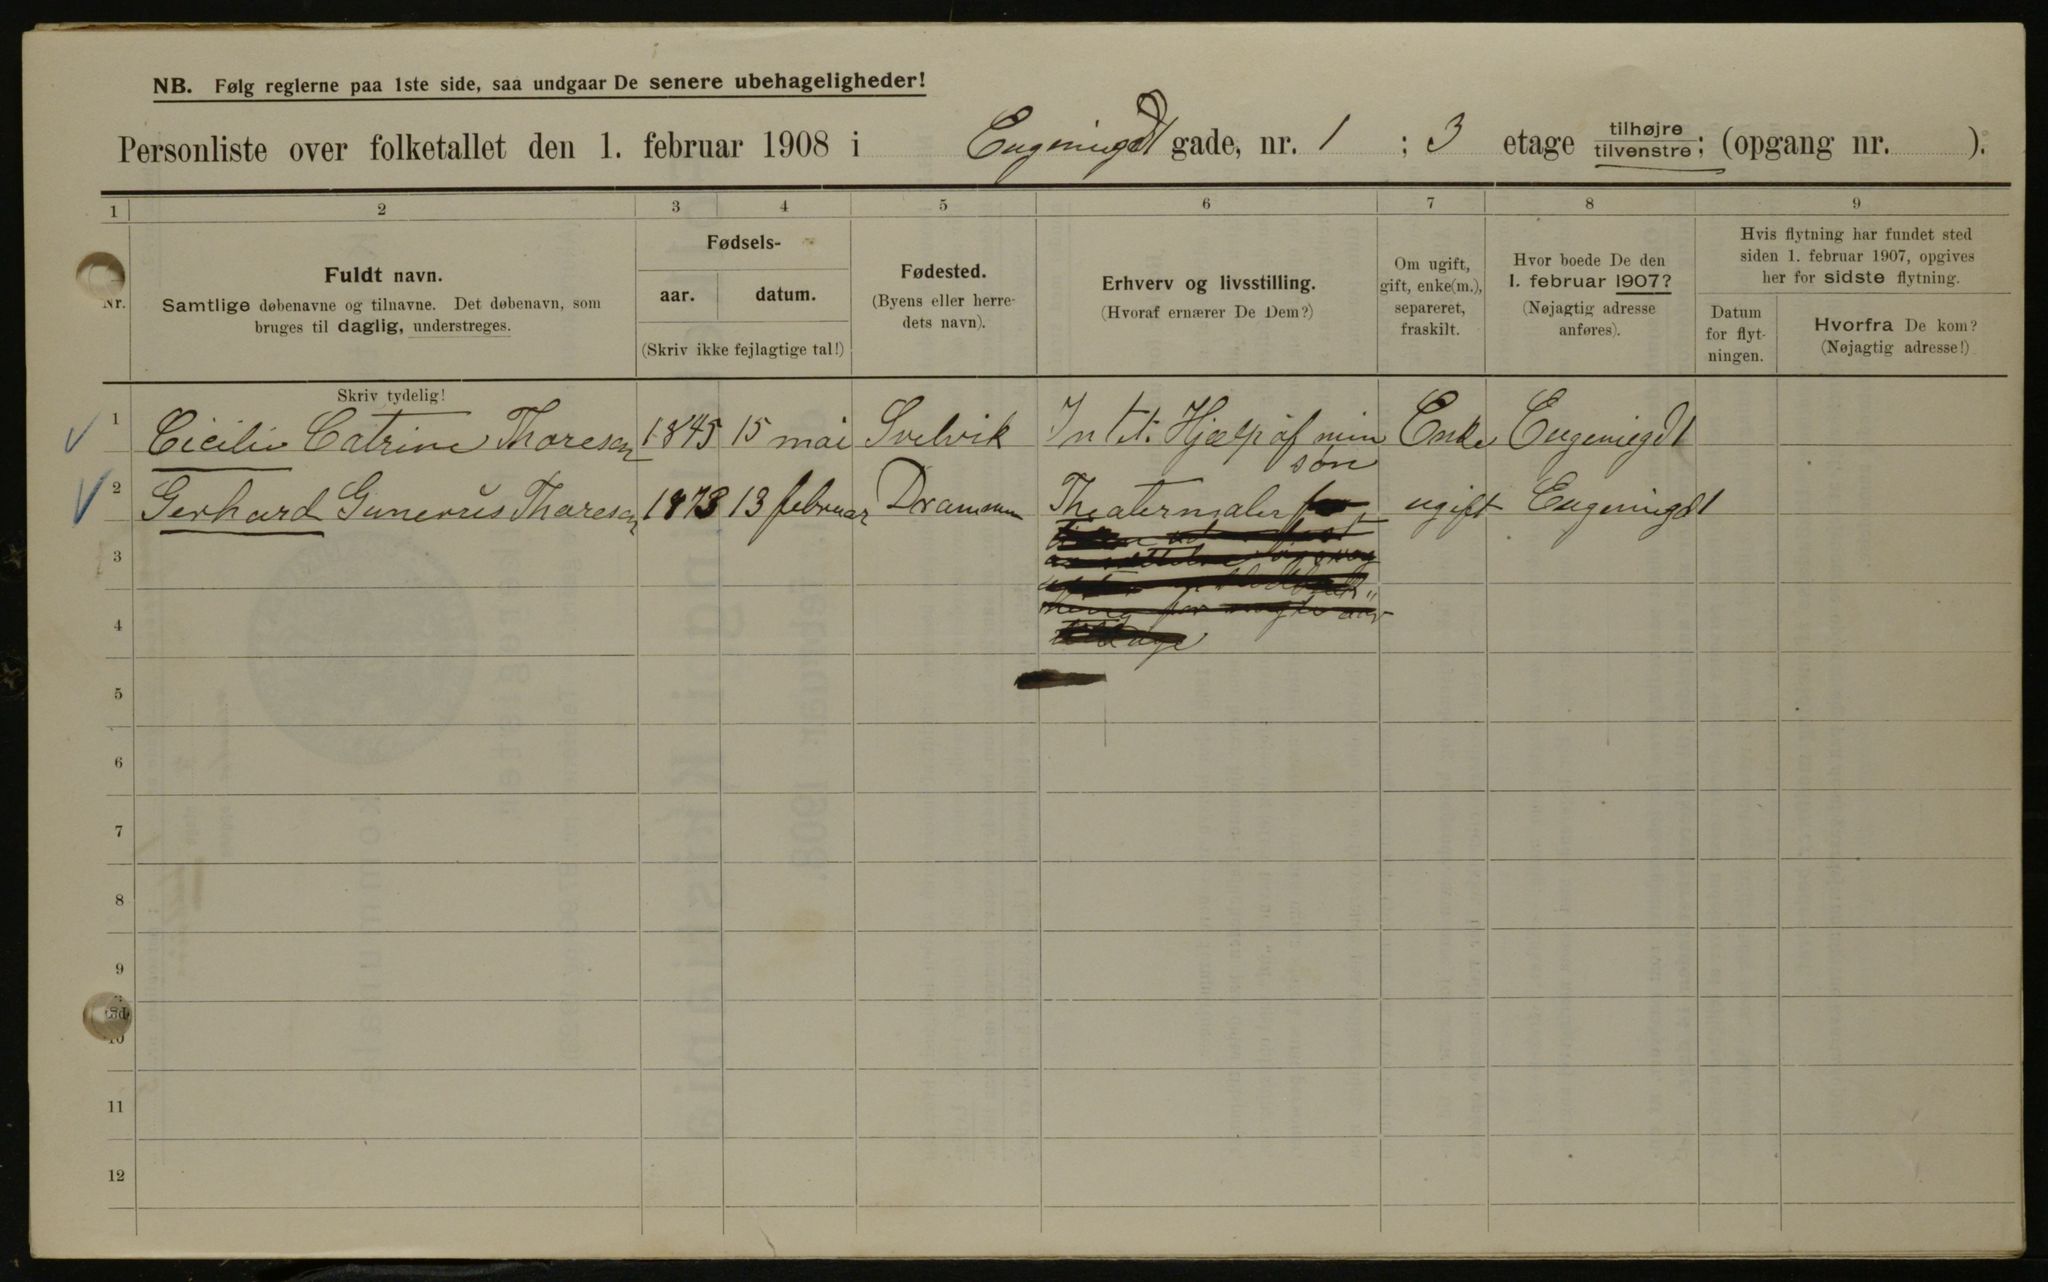 NB. Følg reglerne paa 1ste side, saa undgaar De senere ubehageligheder!
Personliste over folketallet den 1. februar 1908 i Eugeniegdt gade, nr. 1 ; 3 etage tilhøjre tilvenstre; (opgang nr. ).
1 2 3 4 5 6 7 8 9
Nr.
Fuldt navn.
Samtlige døbenavne og tilnavne. Det døbenavn, som
bruges til daglig, understreges.
Fødsels-
aar. datum.
(Skriv ikke fejlagtige tal!)
Fødested.
(Byens eller herre-
dets navn).
Erhverv og livsstilling.
(Hvoraf ernærer De Dem?)
Om ugift,
gift, enke(m.),
separeret,
fraskilt.
Hvor boede De den
1. februar 1907?
(Nøjagtig adresse
anføres).
Hvis flytning har fundet sted
siden 1. februar 1907, opgives
her for sidste flytning.
Datum
for flyt-
ningen.
Hvorfra De kom?
(Nøjagtig adresse!)
Skriv tydelig!
1 Cicilie Catrine Thoresen 1845 15 mai Svelvik Intet. Hjælp af min Enke Eugeniegdt
søn
2 Gerhard Gunerius Thoresen 1873 13 februar Drammen Theatermaler ugift Eugeniegdt
3
4
5
6
7
8
9
10
11
12